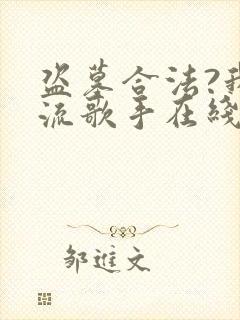 盗墓合法?我
流歌手在綫
邹進文